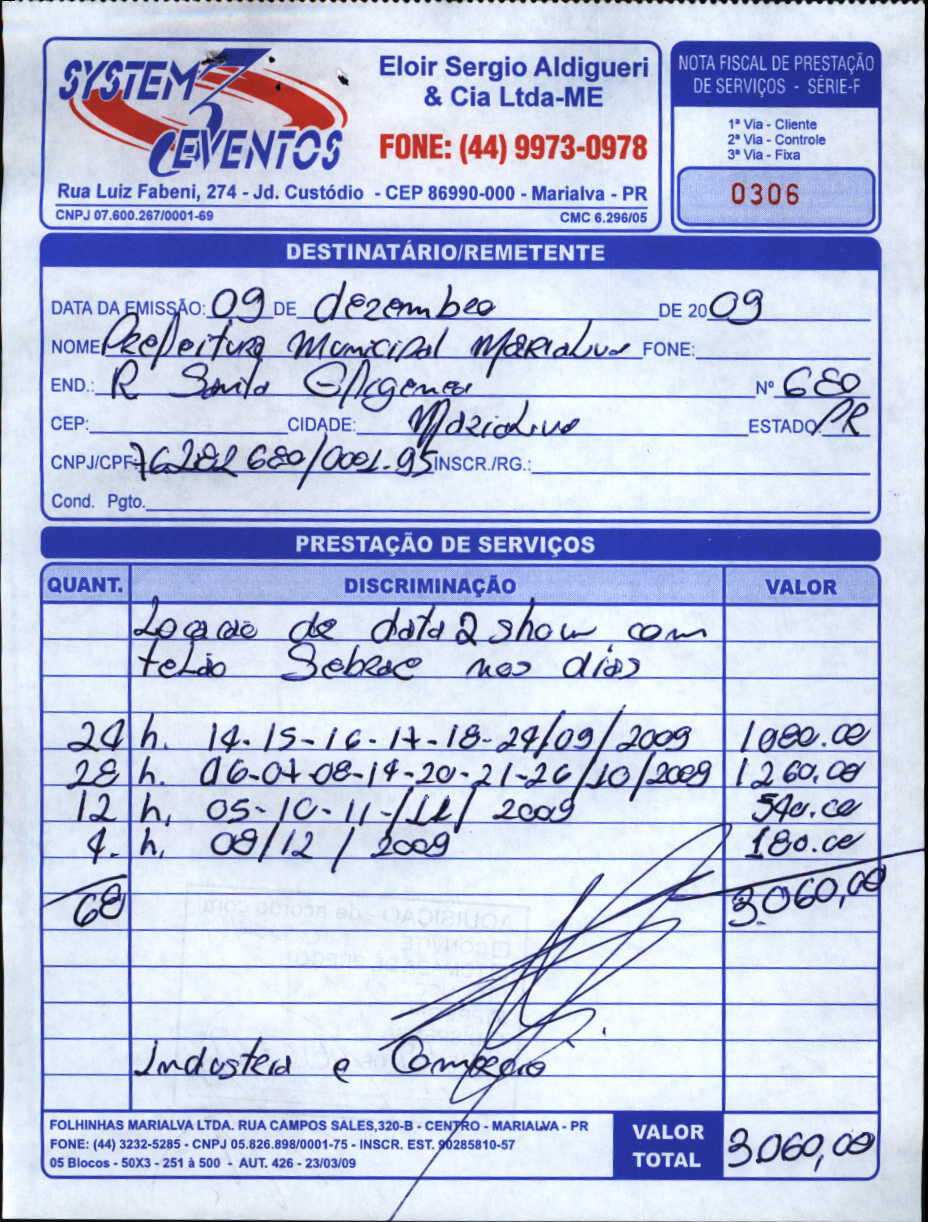 SYSTEM 3 EVENTOS
Eloir Sergio Aldigueri
& Cia Ltda-ME
FONE: (44) 9973-0978
Rua Luiz Fabeni, 274 - Jd. Custódio - CEP 86990-000 - Marialva - PR
CNPJ 07.600.267/0001-69 CMC 6.296/05
NOTA FISCAL DE PRESTAÇÃO
DE SERVIÇOS - SÉRIE-F
1ª Via - Cliente
2ª Via - Controle
3ª Via - Fixa
0306
DESTINATÁRIO/REMETENTE
DATA DA EMISSÃO: 09 DE dezembro DE 2009
NOME Prefeitura Municipal Marialva FONE:
END.: R Santa Efigenea Nº 680
CEP: CIDADE: Marialva ESTADO PR
CNPJ/CPF: 76282 680/0001.95 INSCR./RG.:
Cond. Pgto.
PRESTAÇÃO DE SERVIÇOS
QUANT. DISCRIMINAÇÃO VALOR
Locação de data 2 show com
telão Sebrae nos dias
24 h. 14-15-16-17-18-24/09/2009 1080.00
28 h. 06-07-08-14-20-21-26/10/2009 1260,00
12 h. 05-10-11-/11/2009 540.00
4. h. 08/12/2009 180.00
68 3.060,00
AQUISIÇÃO - de acordo com
CONVITE
Industria e Comercio
FOLHINHAS MARIALVA LTDA. RUA CAMPOS SALES,320-B - CENTRO - MARIALVA - PR
FONE: (44) 3232-5285 - CNPJ 05.826.898/0001-75 - INSCR. EST. 90285810-57
05 Blocos - 50X3 - 251 à 500 - AUT. 426 - 23/03/09
VALOR
TOTAL 3.060,00